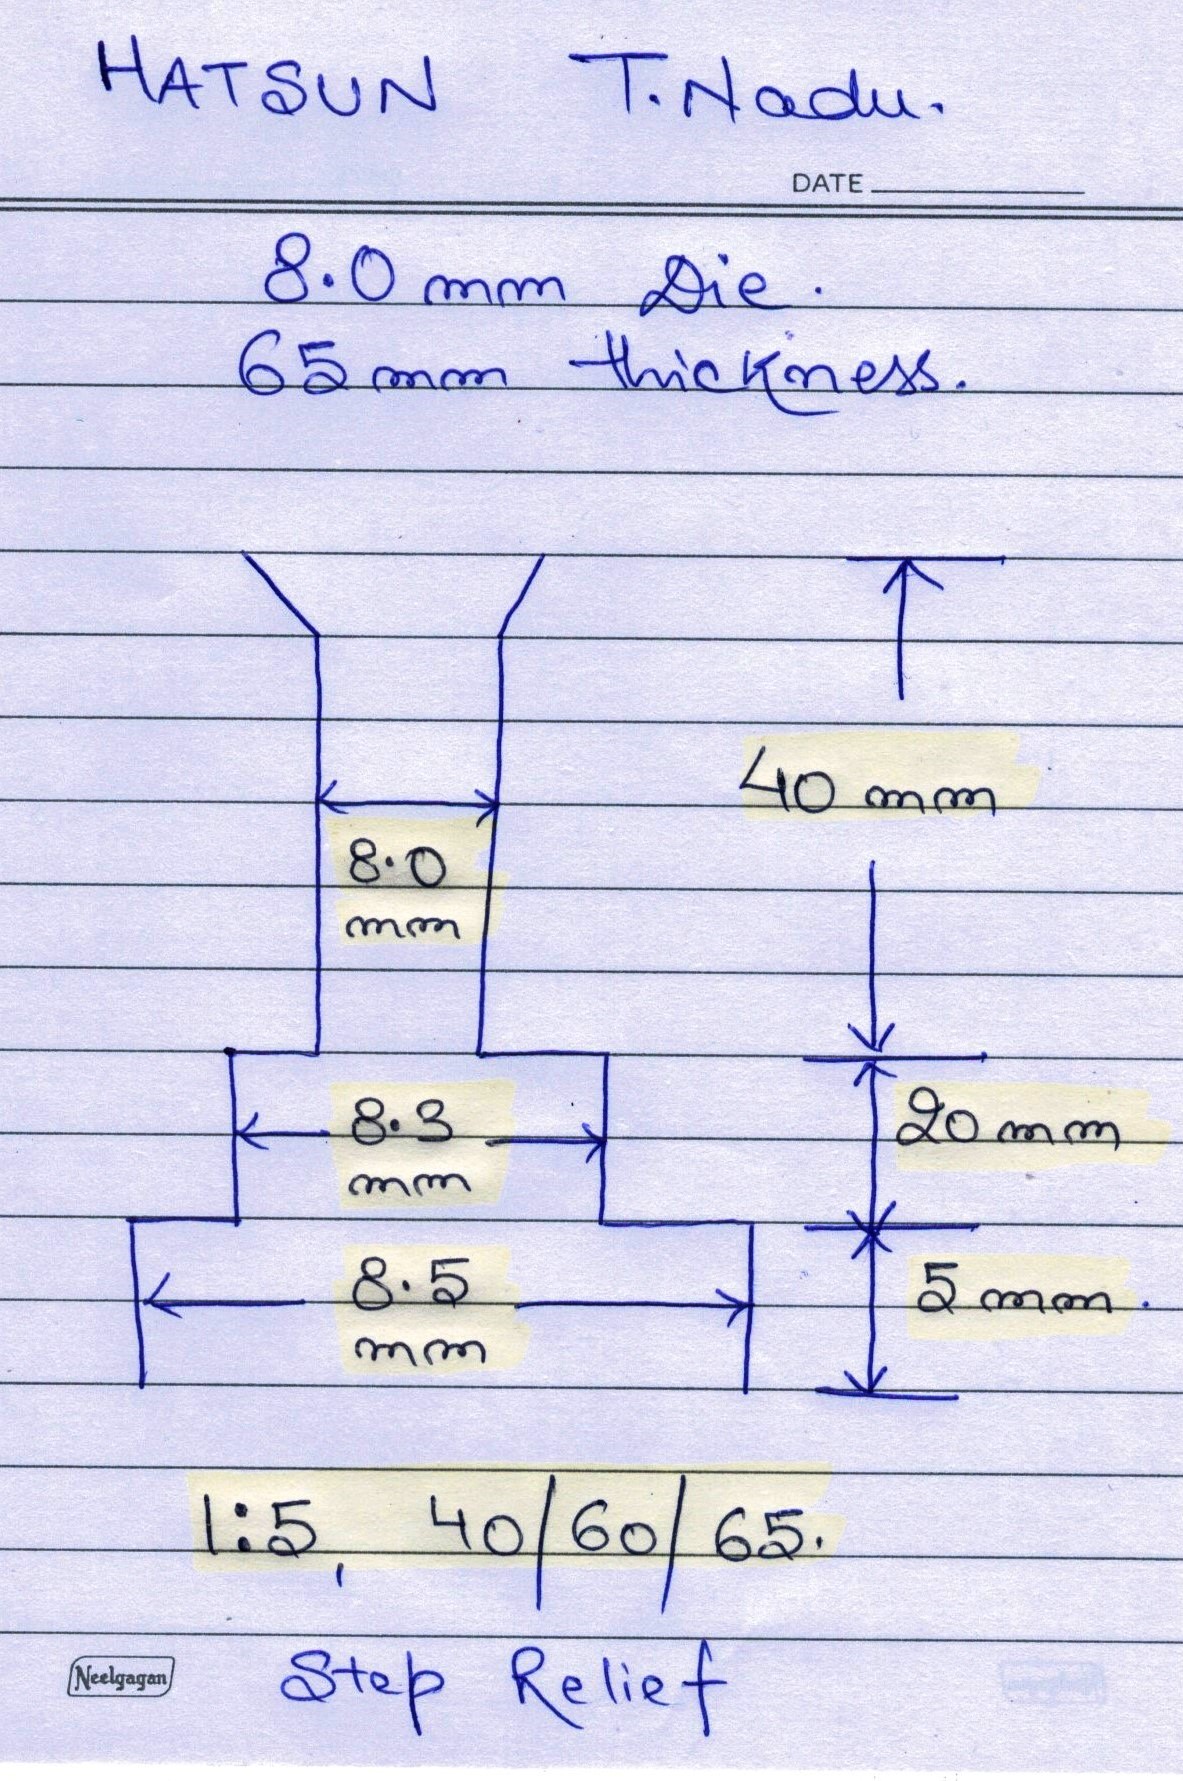 HATSUN T.Nadu.
DATE
8.0 mm Die.
65 mm thickness.
40 mm
8.0
mm
8.3
mm
20 mm
8.5
mm
5 mm.
1:5, 40/60/65.
Step Relief
Neelgagan